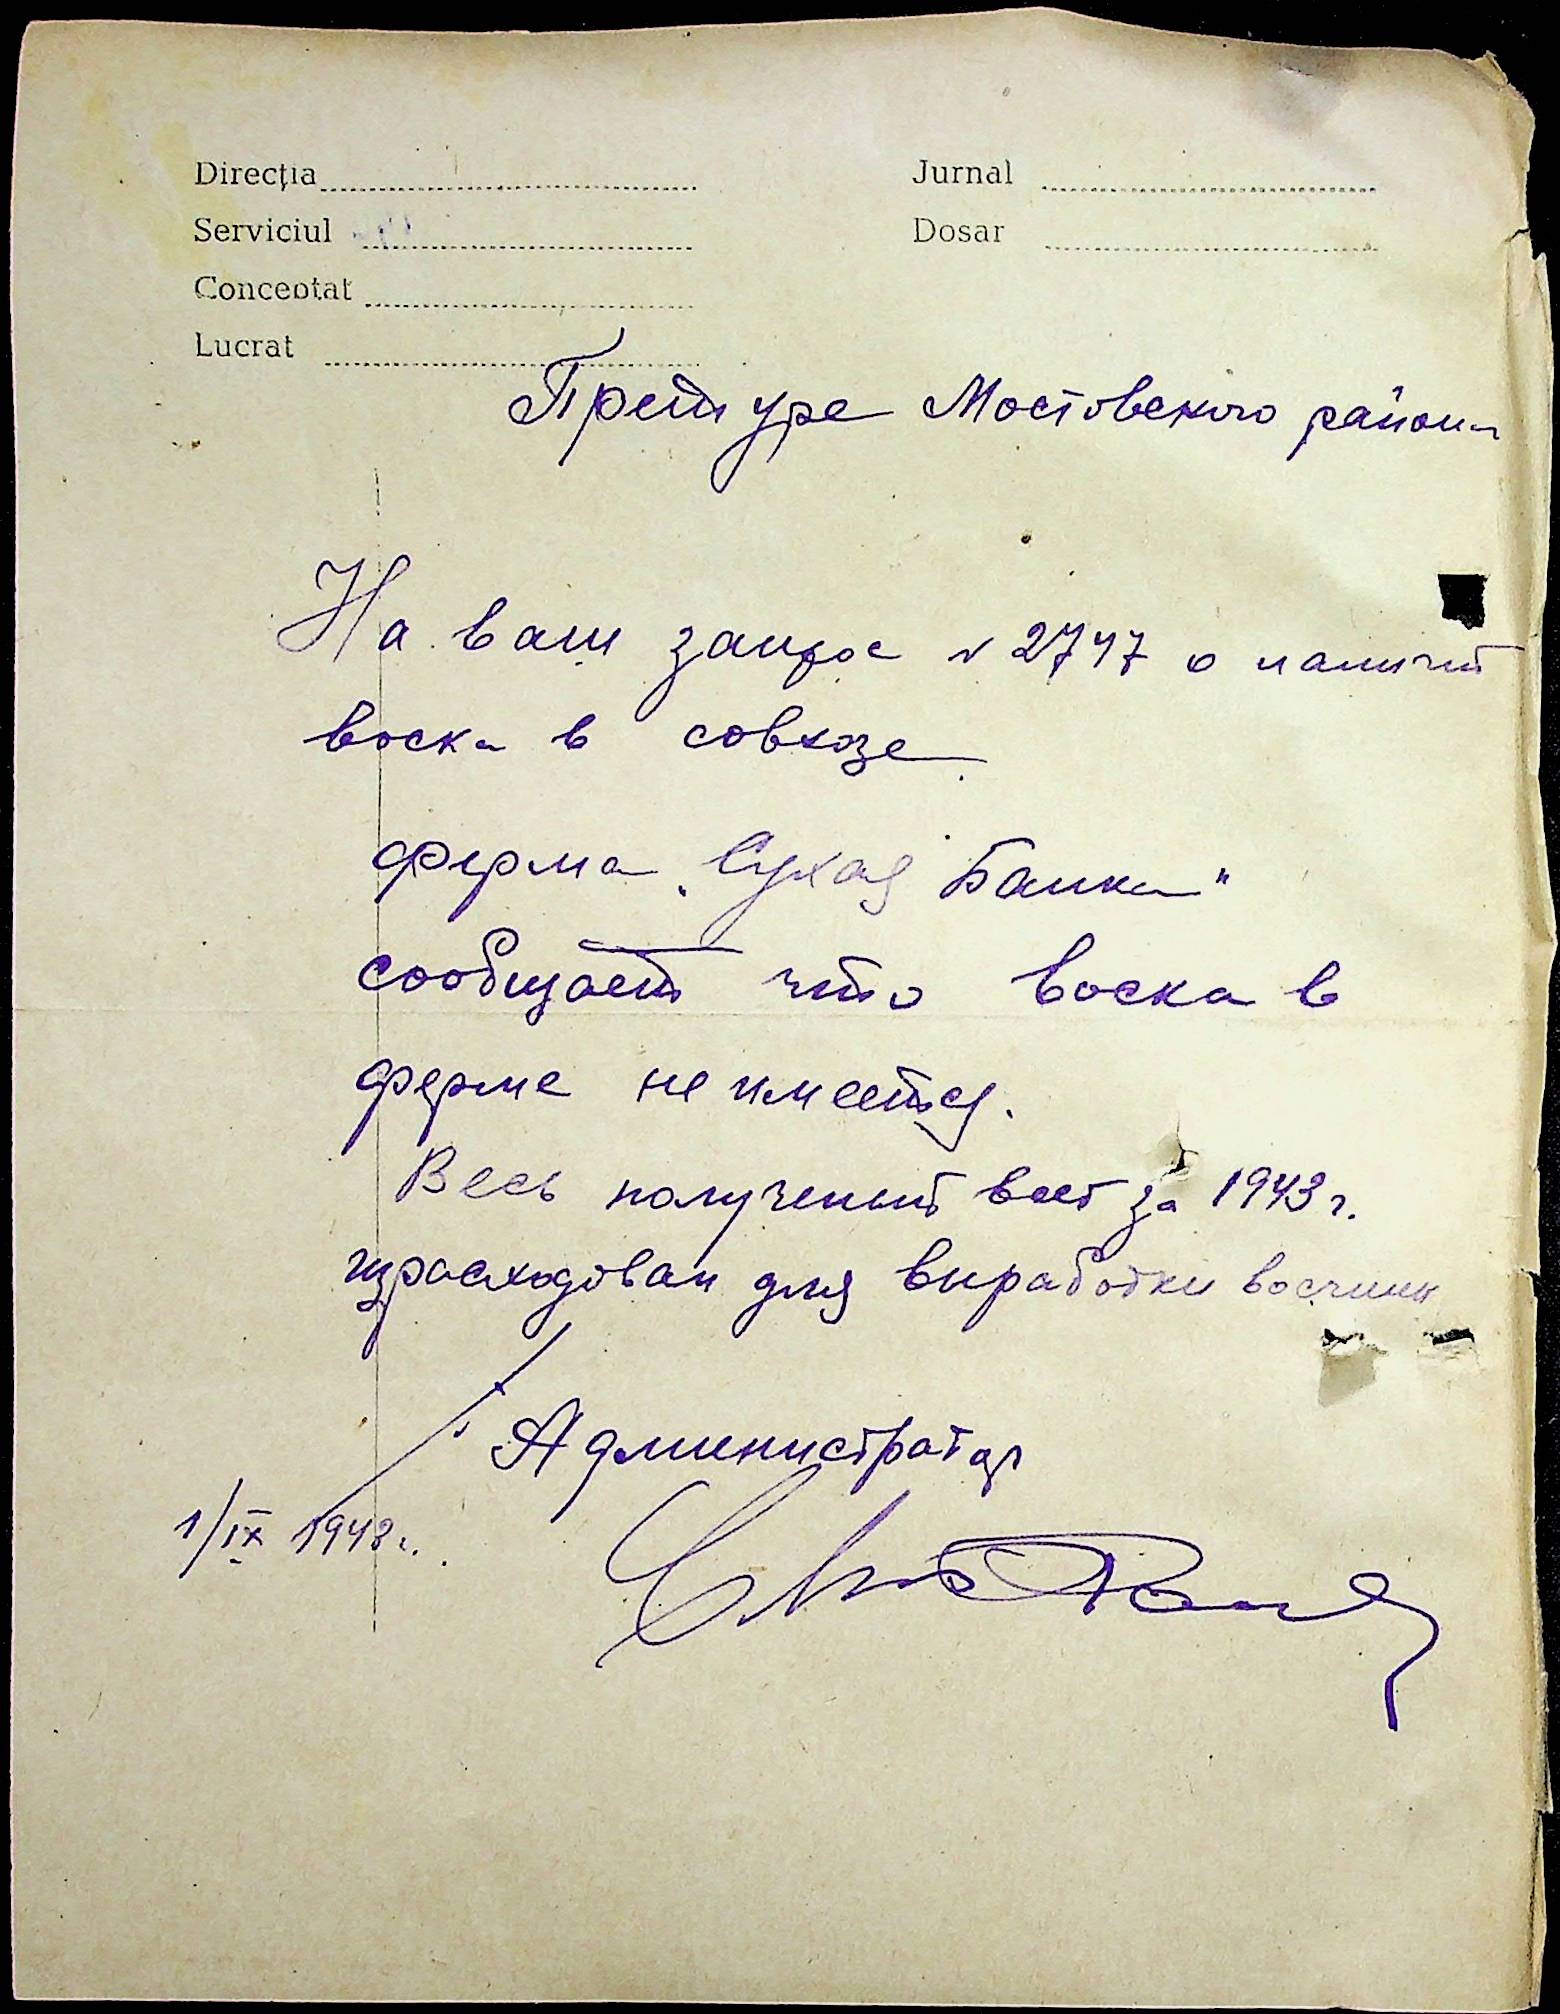 Direcția
Jurnal
Serviciul
Dosar
Conceptat
Lucrat
Претуре Мостовского района
На ваш запрос № 2747 о наличии
воска в совхозе
ферма „Сухая Балка"
сообщает что воска в
ферме не имеется.
Весь полученый воск за 1943 г.
израсходован для выработки вощины
Администратор
1/IX 1943 г.